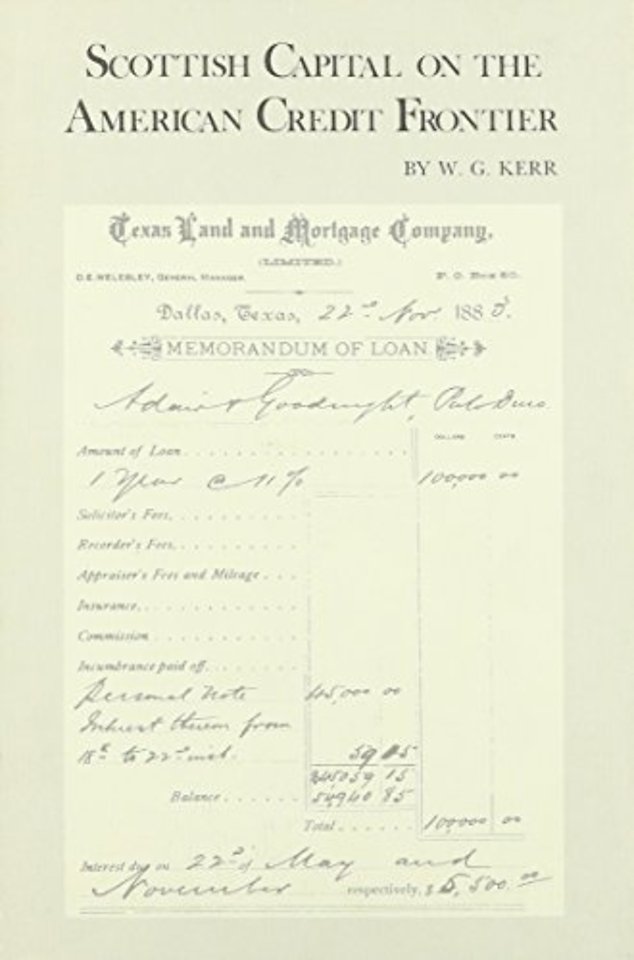 SCOTTISH CAPITAL ON THE
AMERICAN CREDIT FRONTIER
BY W. G. KERR
Texas Land and Mortgage Company,
(LIMITED.)
O.E. WELESLEY, GENERAL MANAGER. P. O. Box 50.
Dallas, Texas, 22nd Nov. 1883.
MEMORANDUM OF LOAN
Adair & Goodnight, Palo Duro
DOLLARS CENTS
Amount of Loan
1 Year @ 11 % 100,000 00
Solicitor's Fees,
Recorder's Fees,
Appraiser's Fees and Mileage
Insurance,
Commission
Incumbrance paid off,
Personal Note 45,000 00
Interest thereon from
18th to 22nd inst. 59 15
45059 15
Balance 54940 85
Total 100,000 00
Interest due on 22nd of May and
November respectively, $ 5,500.00